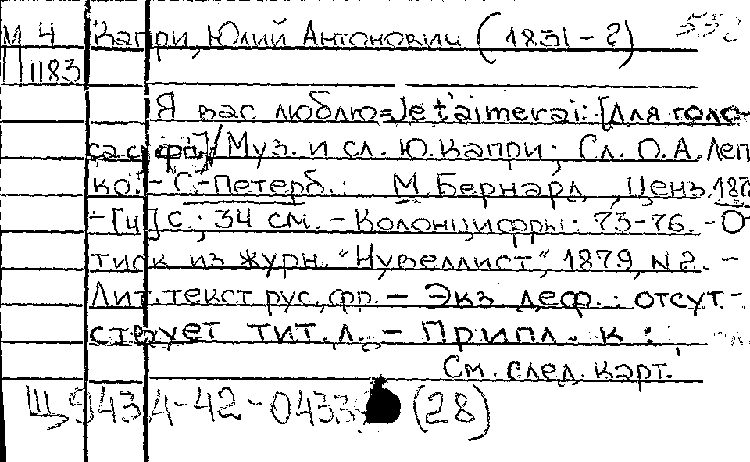 М 4 Капри, Юлий Антонович (1831-?)
П 1183
Я вас люблю=Je t'aimerai: [Для голо-
са с фп.] / Муз. и сл. Ю. Капри; Сл. О.А. Леп
ко. - С.-Петерб.: М. Бернард, Ценз. 187
- [4] с.; 34 см. - Колонцифры: 73-76. - О
тиск из журн. "Нувеллист", 1879, N 2. -
Лит. текст рус., фр. - Экз. деф.: отсут-
ствует тит. л. - Припл. к:
См. след. карт.
Щ943А-42-0433 (28)